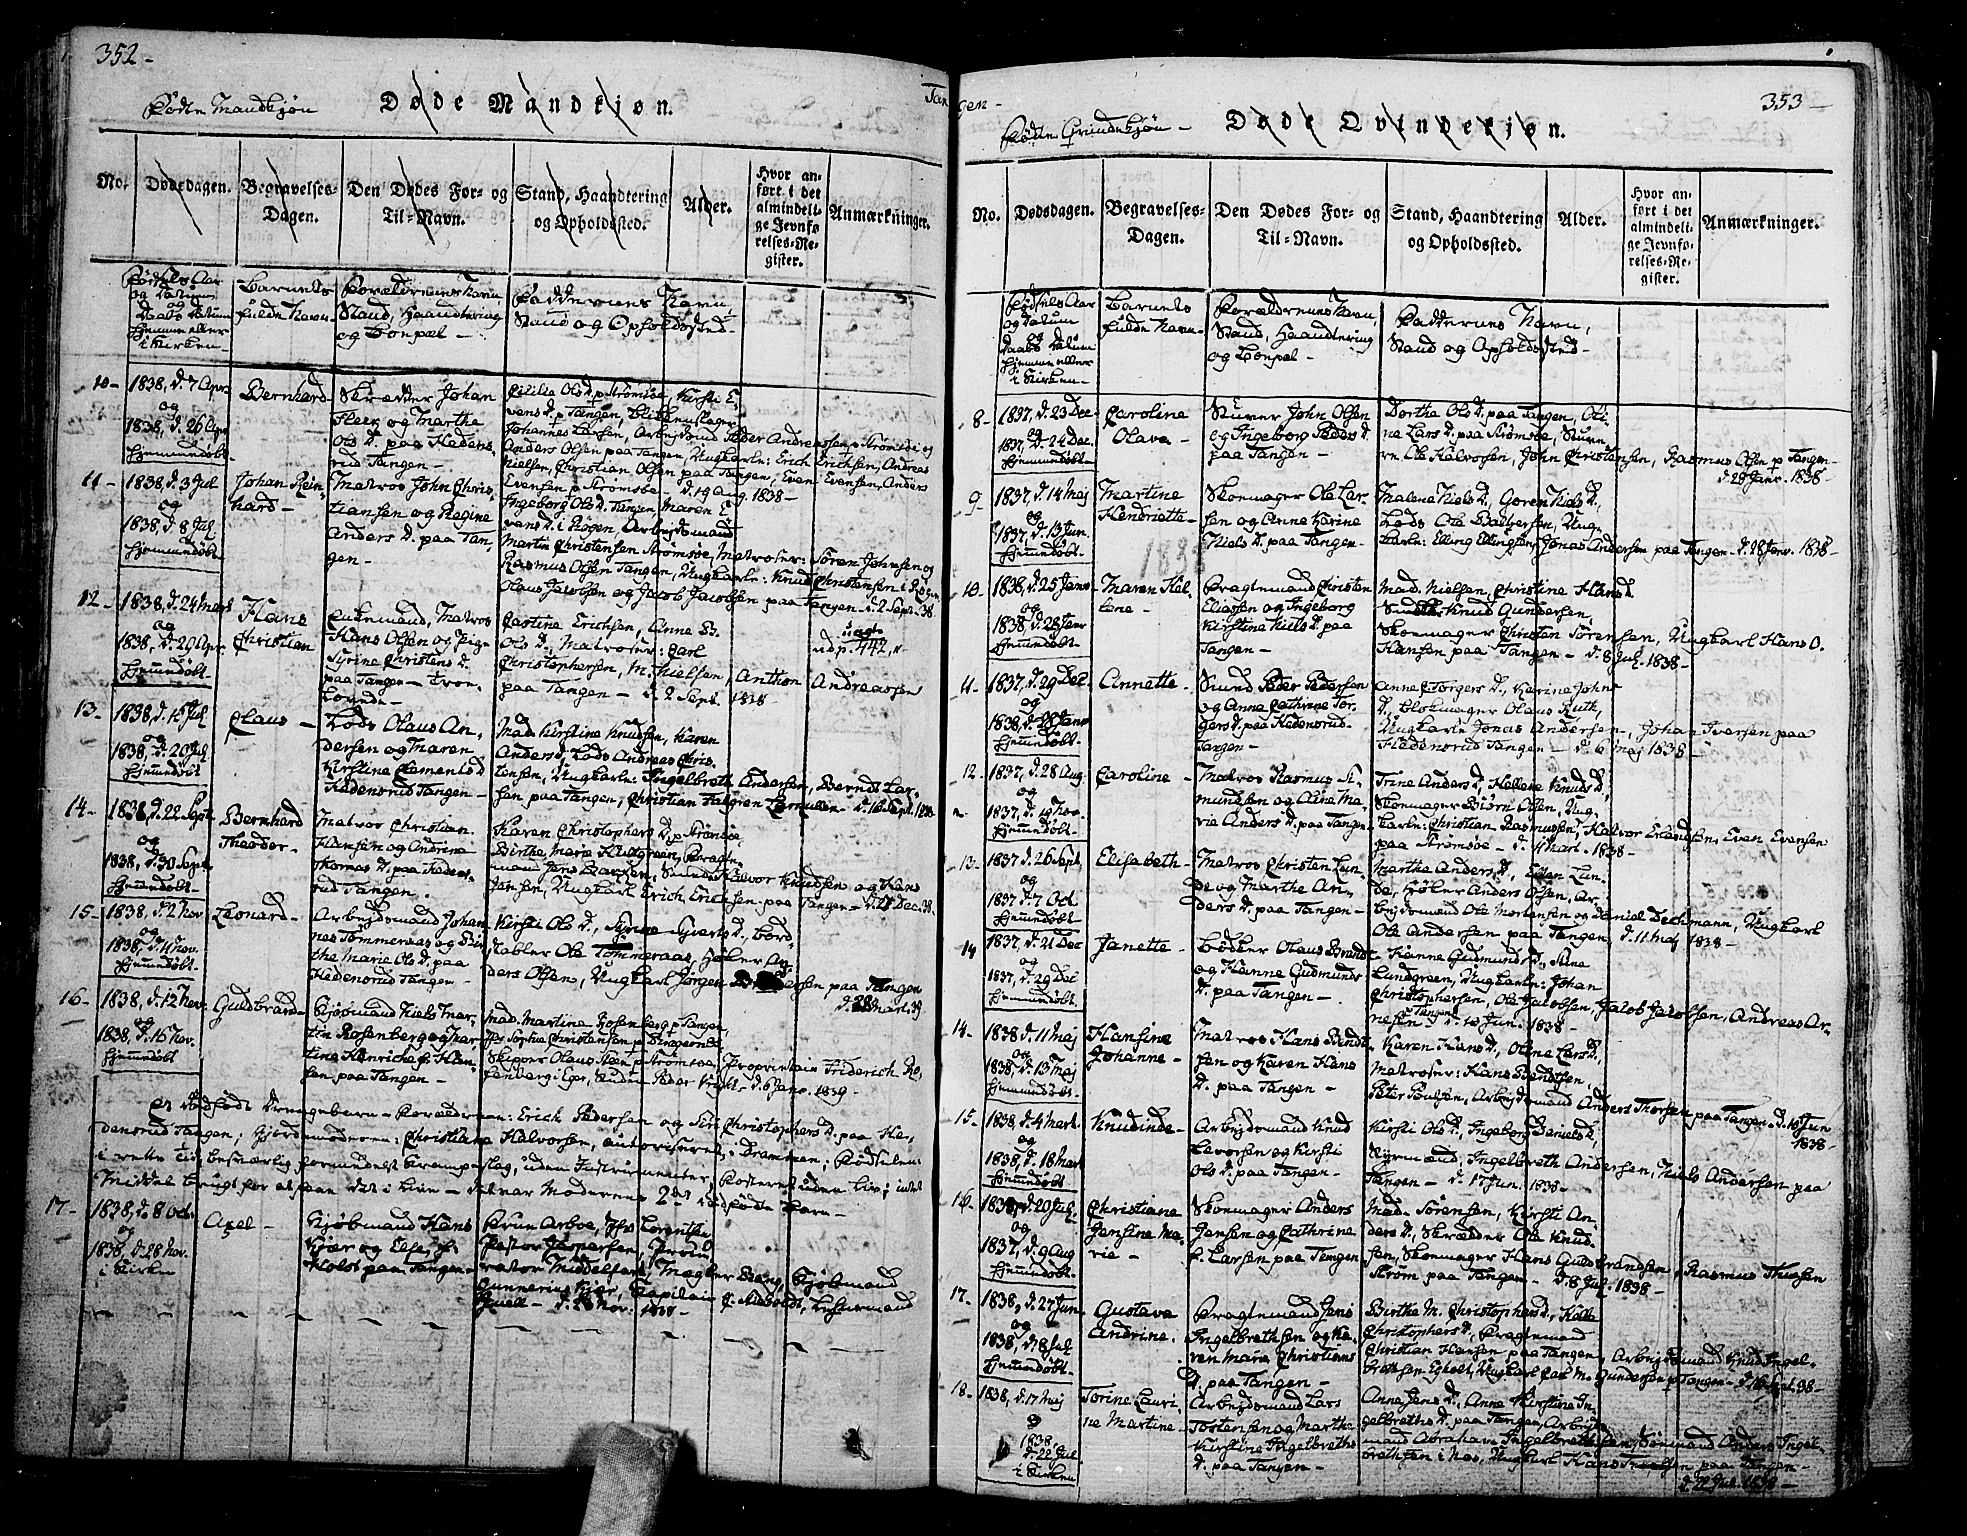 352-
Fødte Mandkjøn
Døde Mandkjøn.
Tan
No.
Dødsdagen.
Begravelses-
Dagen.
Den Dødes For- og
Til-Navn.
Stand, Haandtering
og Opholdssted.
Alder.
Hvor an-
ført i det
almindeli-
ge Jevnfø-
relses-Re-
gister.
Anmærkninger.
Fødsels Aar
og Datum
og
Daabs Datum
hjemme eller
i Kirken-
Barnets
fulde Navn-
Forældrenes Navn
Stand, Haandtering
og Bopæl-
Faddernes Navn,
Stand og Opholdssted-
10-
1838, d. 7 Apr.
og
1838, d. 26 Apr.
hjemmedøbt-
Bernhard
Skrædder Johan
og Marthe
Ols D. paa Hedens-
rud Tangen-
Cecilie Ols D. p. Strømsøe, Kirsti E-
vens D. p. Tangen,
Johannes Larsen, Arbejdsmd Peder Andreassen p. Strømsøe og
Anders Olsen paa Tangen, Ungkarle: Erich Erichsen, Andreas
Nielsen, Christian Olsen paa Tangen, Even Evensen, Anders
Evensen p. Strømsøe- d. 19 Aug. 1838-
11-
1838, d. 3 Jul
og
1838, d. 8 Jul
hjemmedøbt-
Johan Rein-
hard-
Matros John Chris-
tiansen og Regine
Anders D. paa Tan-
gen-
Ingeborg Ols D. Tangen, Maren E-
vens D. i Røgen, Arbejdsmand
Martin Christensen Strømsøe, Matroser: Søren Johnsen og
Rasmus Olsen Tangen, Ungkarle: Knud Christensen i Røgen
Olaus Jacobsen og Jacob Jacobsen paa Tangen- d. 2 Sept. 38-
12-
1838, d. 24 Mart
og
1838, d. 29 Apr.
hjemmedøbt
Hans
Christian
Enkemand, Matros
Hans Olsen og Pige
Syrine Christens D.
paa Tangen- trou-
lovede-
Erichsen, Anne B.
Ols D., Matroser: Carl
Christophersen, M. Nielsen, Anthon Andreassen
paa Tangen- d. 2 Sept. 1838
udp. 442,
13-
1838, d. 15 Jul
og
1838, d. 20 Jul
hjemmedøbt
Olaus-
Lods Olaus An-
dersen og Maren
Kirstine Clements D.
Hedensrud Tangen-
Mad. Kirstine Knudsen, Karen
Anders D., Lods Andreas Chris-
tensen, Ungkarle: Ingelbreth Andersen, Berndt Lar-
sen paa Tangen, Christian - d. 16 Sept. 1838
14-
1838, d. 22 Sept
og
1838, d. 30 Sept
hjemmedøbt
Bernhard
Theodor-
Matros Christian
Hansen og Andrine
Thomas D. paa Hedens-
rud Tangen.
Karen Christophers D. p. Strømsøe
Birthe Marie Hultgreen, Fragte-
mand Jens Larsen, Halvor Knudsen og Hans
Jansen, Ungkarl Erich Erichsen paa Tangen- Dec. 38.
15-
1838, d. 2 Nov
og
1838, d. 10 Nov.
hjemmedøbt-
Leonard-
Arbejdsmand Johan-
nes Tømmeraas og Bir-
the Marie Ols D. paa
Hedensrud Tangen-
Kirsti Ols D., Syrine Syverts D., Bord-
stabler Ole Tømmeraas, Høker An-
ders Olsen, Ungkarl Jørgen paa Tangen
Mart. 39
16-
1838, d. 12 Nov.
og
1838, d. 16 Nov.
hjemmedøbt
Guldbrand-
Kjøbmand Niels Mar-
tin Rosenberg og Mar-
tine Henriche f. Han-
sen paa Tangen-
Mad. Martine Rosenberg p. Tangen,
Jfr Sophie Christensen p. Bragernæs
Skipper Olaus p. Strømsøe, Proprietair Friderich Ro-
senberg i Eger, d. 6 Janv. 1839-
et dødfødt Drengebarn- Forældrene: Erich Pedersen og Siri Christophers D. paa He-
densrud Tangen; Gjordemoderen: Christiane Halvorsen, autoriseret- Drammen; Fødselen
i rette tid, besværlig formedelst Krampeslag, uden Instrumenter, Fosteret uden Liv; intet
Middel brugt for at faae det i Live- det var Moderens 2det dødfødte Barn-
17-
1838, d. 8 Oct.
og
1838, d. 28 Nov.
i Kirken
Axel-
Kjøbmand Hans
Kjær og Else f.
Holst paa Tangen-
Frue Arboe, Jfr Lorentzen
Pastor Jespersen, Procu-
rator Middelfart, Mægler Bang, Kjøbmand
Gunnerius Kjær, Capitain C. Sibbert, Styrmand
Juell- d. 28 Nov. 1838-
gen-
353-
Fødte Qvindekjøn-
Døde Qvindekjøn.
No.
Dødsdagen.
Begravelses-
Dagen.
Den Dødes For- og
Til-Navn.
Stand, Haandtering
og Opholdssted.
Alder.
Hvor an-
ført i det
almindeli-
ge Jevnfø-
relses-Re-
gister.
Anmærkninger.
Fødsels Aar
og Datum
og
Daabs Datum
hjemme eller
i Kirken-
Barnets
fulde Navn-
Forældrenes Navn,
Stand, Haandtering
og Bopæl-
Faddernes Navn,
Stand og Opholdssted-
8-
1837, d. 23 Dec-
og
1837, d. 24 Dec.
hjemmedøbt
Caroline
Olava-
Sturer John Olsen
og Ingeborg Peders D.
paa Tangen-
Dorthe Ols D. paa Tangen, Oli-
ne Lars D. paa Strømsøe, Sture-
re Ole Halvorsen, John Christensen, Rasmus Olsen p. Tangen-
d. 28 Janv. 1838-
9-
1837 d. 14 Maj
og
1837, d. 13 Jun.
hjemmedøbt
Martine
Hendriette-
Skomager Ole Lar-
sen og Anne Karine
Niels D. paa Tangen-
Malene Niels D., Goren Niels D.,
Lods Ole , Ung-
karle: Elling Ellingsen, Jonas Andersen paa Tangen- d. 28 Janv. 1838-
10-
1838, d. 25 Janv
og
1838 d. 28 Janv
hjemmedøbt
Maren Hel-
lene-
Fragtemand Christen
Eliassen og Ingeborg
Kirstine Niels D. paa
Tangen-
Mad. Nielsen, Christine Hans D.
Knud Gundersen,
Skomager Christen Sørensen, Ungkarl Hans O.
Hansen paa Tangen- d. 8 Jul. 1838-
11-
1837, d. 29 Dec.
og
1838, d. 28 Janv
hjemmedøbt
Annette-
Smed Peder Pedersen
og Anne Cathrine Tor-
gers D. paa Hedensrud-
Tangen-
Anne Torgers D., Karine Johns
D. Blokmager Olaus Ruth,
Ungkarle Jonas Andersen, Johan Iversen paa
Hedensrud Tangen- d. 6 Maj 1838-
12-
1837, d. 28 Aug.
og
1837, d. 14 Nov.
hjemmedøbt
Caroline-
Matros Rasmus Si-
mundsen og Aine Ma-
rie Anders D. paa Tangen
Trine Anders D., Hellene Knuds D.,
Skomager Bjørn Olsen, Ung-
karle: Christian Rasmussen, Halvor Erlandsen, Even Evensen
paa Strømsøe- d. 11 Mart. 1838-
13-
1837 d. 26 Sept
og
1837 d. 7 Oct.
hjemmedøbt
Elisabeth-
Matros Christen Lun-
de og Marthe An-
ders D. paa Tangen-
Marthe Anders D., Ellen Lun-
de, Høker Anders Olsen, Ar-
bejdsmænd Ole Mortensen og Daniel Dechmann, Ungkarl
Ole Andersen paa Tangen, d. 11 Maj 1838-
14
1837, d. 21 Dec
og
1837, d. 29 Dec
hjemmedøbt
Janette-
Bødker Olaus Brandt
og Hanne Gudmunds
D. paa Tangen-
Hanne Gudmunds D., Stine
Lundgreen, Ungkarle: Johan
Christophersen, Ole Jacobsen, Jacob Jacobsen, Andreas Ar-
nesen p. Tangen d. 10 Jun. 1838-
14-
1838 d. 11 Maj
og
1838, d. 13 Maj
hjemmedøbt
Hansine
Johanne-
Matros Hans Bendt-
sen og Karen Hans
D. paa Tangen-
Karen Hans D., Oline Lars D.
Matroser: Hans Bendtsen,
Peter Poulsen, Arbejdsmand Anders Thorsen paa Tangen- d. 10 Jun
1838-
15-
1838, d. 4 Mart
og
1838, d. 18 Mart
hjemmedøbt
Knudinde-
Arbejdsmand Knud
Levorsen og Kirsti
Ols D. paa Tangen-
Kirsti Ols D., Ingeborg Daniels D.,
Styrmand, Ingelbreth Andersen, Niels Andersen paa
Tangen- d. 17 Jun. 1838-
16-
1838, d. 20 Jul.
og
1837, d. 9 Aug
hjemmedøbt
Christiane
Jensine Ma-
rie-
Skomager Anders
Jensen og Cathrine
f. Larsen paa Tangen
Mad. Sørensen, Kirsti An-
ders D., Skrædder Ole Knud-
sen, Skomager Hans Guldbrandsen, Rasmus Thuesen
Strøm paa Tangen- d. 8 Jul. 1838-
17-
1838, d. 27 Jun.
og
1838, d. 8 Jul
hjemmedøbt
Gustava
Andrine-
Fragtemand Jens
Ingelbrethsen og Ka-
ren Marie Christians
D. paa Tangen-
Birthe M. Christophers D.,
Christophers D., Fragtemand
Christian Hansen paa Tangen, Arbejdsmand Knud Ingel-
brethsen Egholt, Ungkarl Carl M. Gundersen p. Tangen- 38-
18-
1838, d. 17 Maj
og
1838
d. 22 Jul.
i Kirken
Torine Lauri-
ne Martine-
Arbejdsmand Lars
Tostensen og Marthe
Kirstine Ingelbreths
D. paa Tangen-
Anne Jens D., Anne Kirstine In-
gelbreths D. paa Tangen, Arbejds-
mand Abraham Ingelbrethsen, Anders Ingel-
brethsen i Næs, Ungkarl Hans paa Tangen-
d. 22 Jul. 1838-